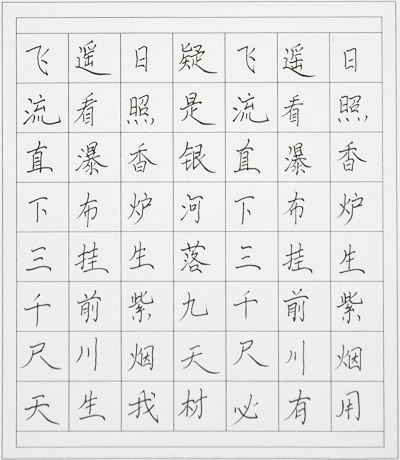 日照香炉生紫烟
遥看瀑布挂前川
飞流直下三千尺
疑是银河落九天
日照香炉生紫烟
遥看瀑布挂前川
飞流直下三千尺
天生我材必有用